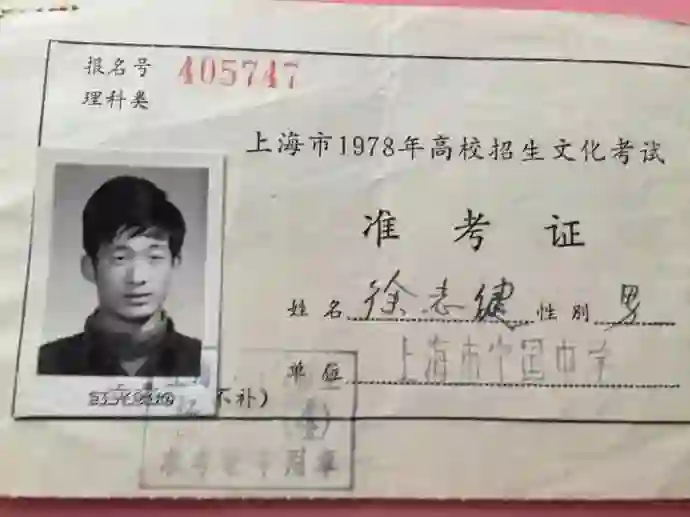 报名号 405747
理科类
上海市1978年高校招生文化考试
准考证
姓名 徐志健 性别 男
单位 上海市安国中学
不补）
准考证专用章